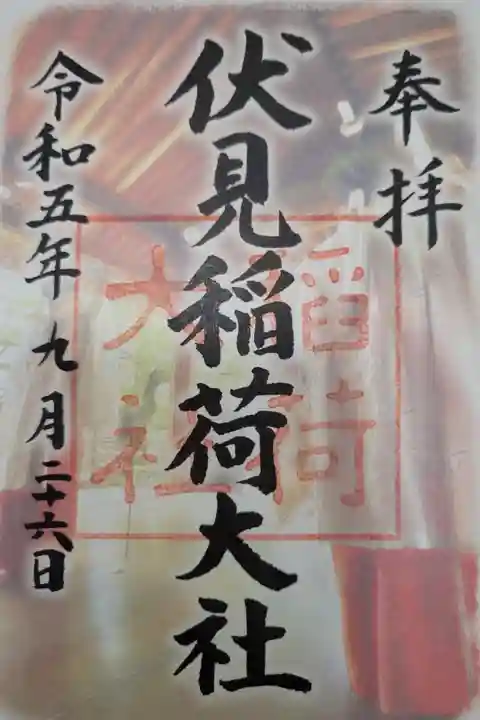 奉拝
伏見稲荷大社
稲荷
大社
令和五年九月二十六日